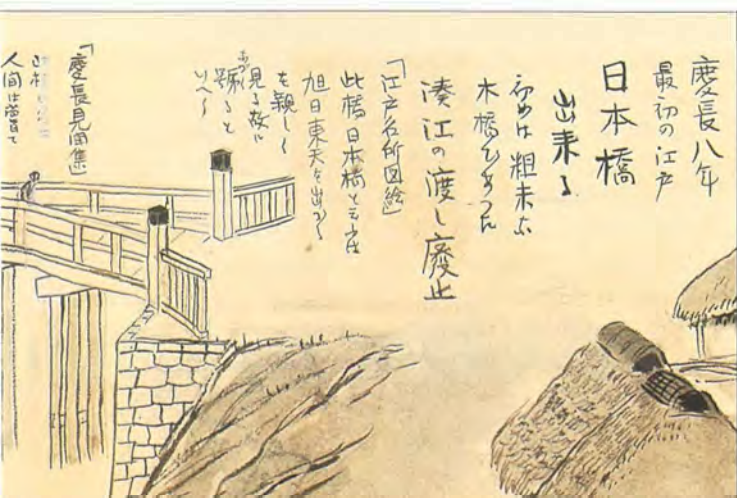 慶長八年
最初の江戸
日本橋
出来る
初めは粗末な
木橋であつた
湊江の渡し廃止
「江戸名所図絵」
此橋日本橋と云うは
旭日東天を出づる
を親しく
見る故に
号ると
いへり
「慶長見聞集」
人間は皆